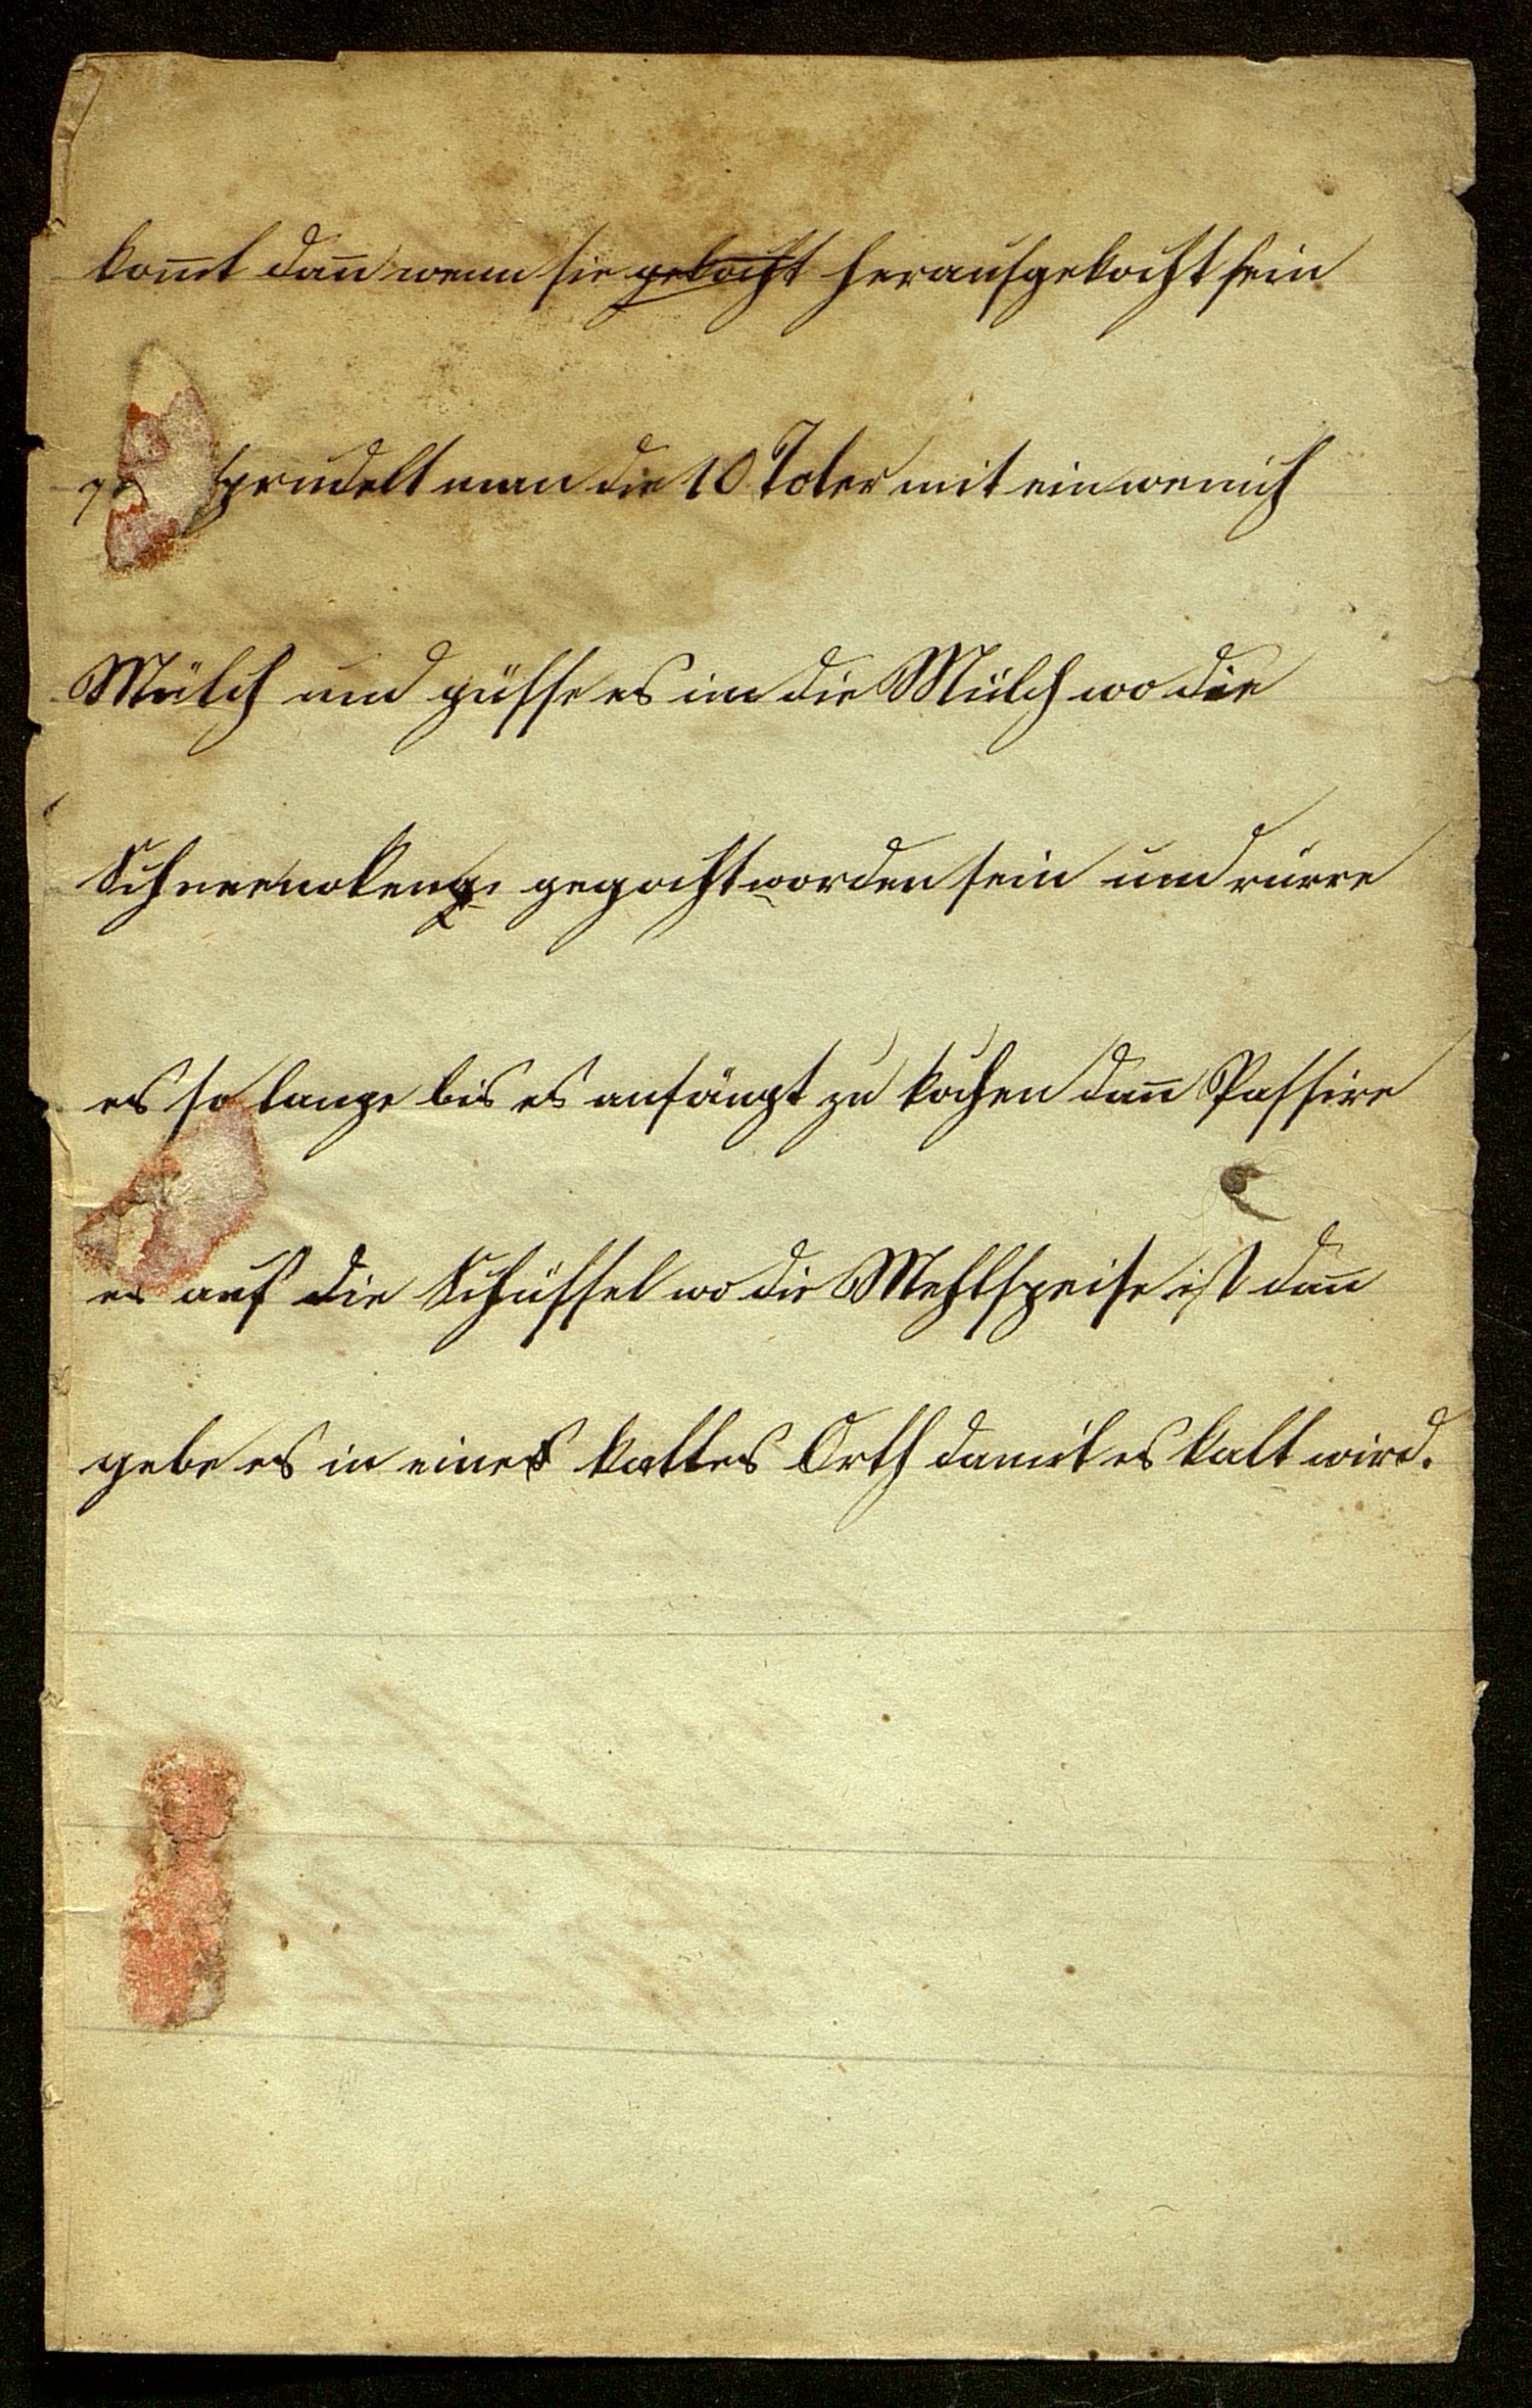 kom̅t dan̅ wenn sie gekocht herausgekocht sein
sprudelt man die 10 Toter mit ein wenich
Mülch und güsse es in die Mülch wo die
Schneenoken gegocht worden sein und rürre
es so lange bis es anfängt zu kochen dan̅ Passire
es auf die Schüssel wo die Mehlspeise ist dan̅
gebe es in eines kaltes Orth damit es kalt wird.